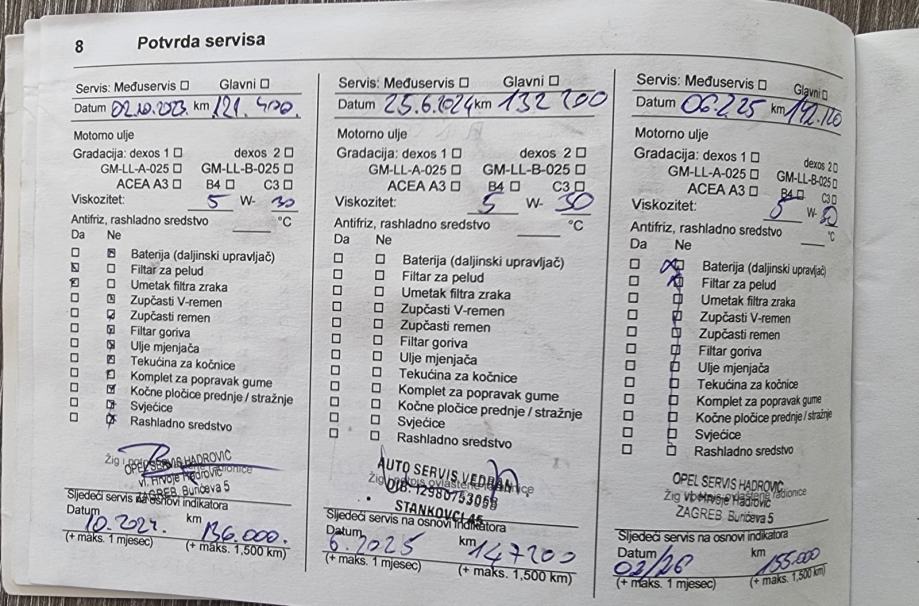 8 Potvrda servisa
Servis: Međuservis Glavni
Datum 02.10.2023. km 121.400.
Motorno ulje
Gradacija: dexos 1 dexos 2
GM-LL-A-025 GM-LL-B-025
ACEA A3 B4 C3
Viskozitet: 5 W- 30
Antifriz, rashladno sredstvo °C
Da Ne
Baterija (daljinski upravljač)
Filtar za pelud
Umetak filtra zraka
Zupčasti V-remen
Zupčasti remen
Filtar goriva
Ulje mjenjača
Tekućina za kočnice
Komplet za popravak gume
Kočne pločice prednje / stražnje
Svjećice
Rashladno sredstvo
OPEL SERVIS HADROVIC
vl. Hrvoje Hadrović
ZAGREB, Burićeva 5
Sljedeći servis na osnovi indikatora
Datum km
10.2024. 136.000.
(+ maks. 1 mjesec) (+ maks. 1,500 km)
Servis: Međuservis Glavni
Datum 25.6.2024 km 132 200
Motorno ulje
Gradacija: dexos 1 dexos 2
GM-LL-A-025 GM-LL-B-025
ACEA A3 B4 C3
Viskozitet: 5 W- 30
Antifriz, rashladno sredstvo °C
Da Ne
Baterija (daljinski upravljač)
Filtar za pelud
Umetak filtra zraka
Zupčasti V-remen
Zupčasti remen
Filtar goriva
Ulje mjenjača
Tekućina za kočnice
Komplet za popravak gume
Kočne pločice prednje / stražnje
Svjećice
Rashladno sredstvo
AUTO SERVIS VEDRAN
Žig i potpis ovlaštene radionice
OIB: 12980753058
STANKOVCI
Sljedeći servis na osnovi indikatora
Datum km
6.2025 147200
(+ maks. 1 mjesec) (+ maks. 1,500 km)
Servis: Međuservis Glavni
Datum 06.2.25 km 142.120
Motorno ulje
Gradacija: dexos 1 dexos 2
GM-LL-A-025 GM-LL-B-025
ACEA A3 B4 C3
Viskozitet: 5 W- 30
Antifriz, rashladno sredstvo °C
Da Ne
Baterija (daljinski upravljač)
Filtar za pelud
Umetak filtra zraka
Zupčasti V-remen
Zupčasti remen
Filtar goriva
Ulje mjenjača
Tekućina za kočnice
Komplet za popravak gume
Kočne pločice prednje / stražnje
Svjećice
Rashladno sredstvo
OPEL SERVIS HADROVIC
vl. Hrvoje Hadrović
ZAGREB, Burićeva 5
Sljedeći servis na osnovi indikatora
Datum km
02/26 155.000
(+ maks. 1 mjesec) (+ maks. 1,500 km)